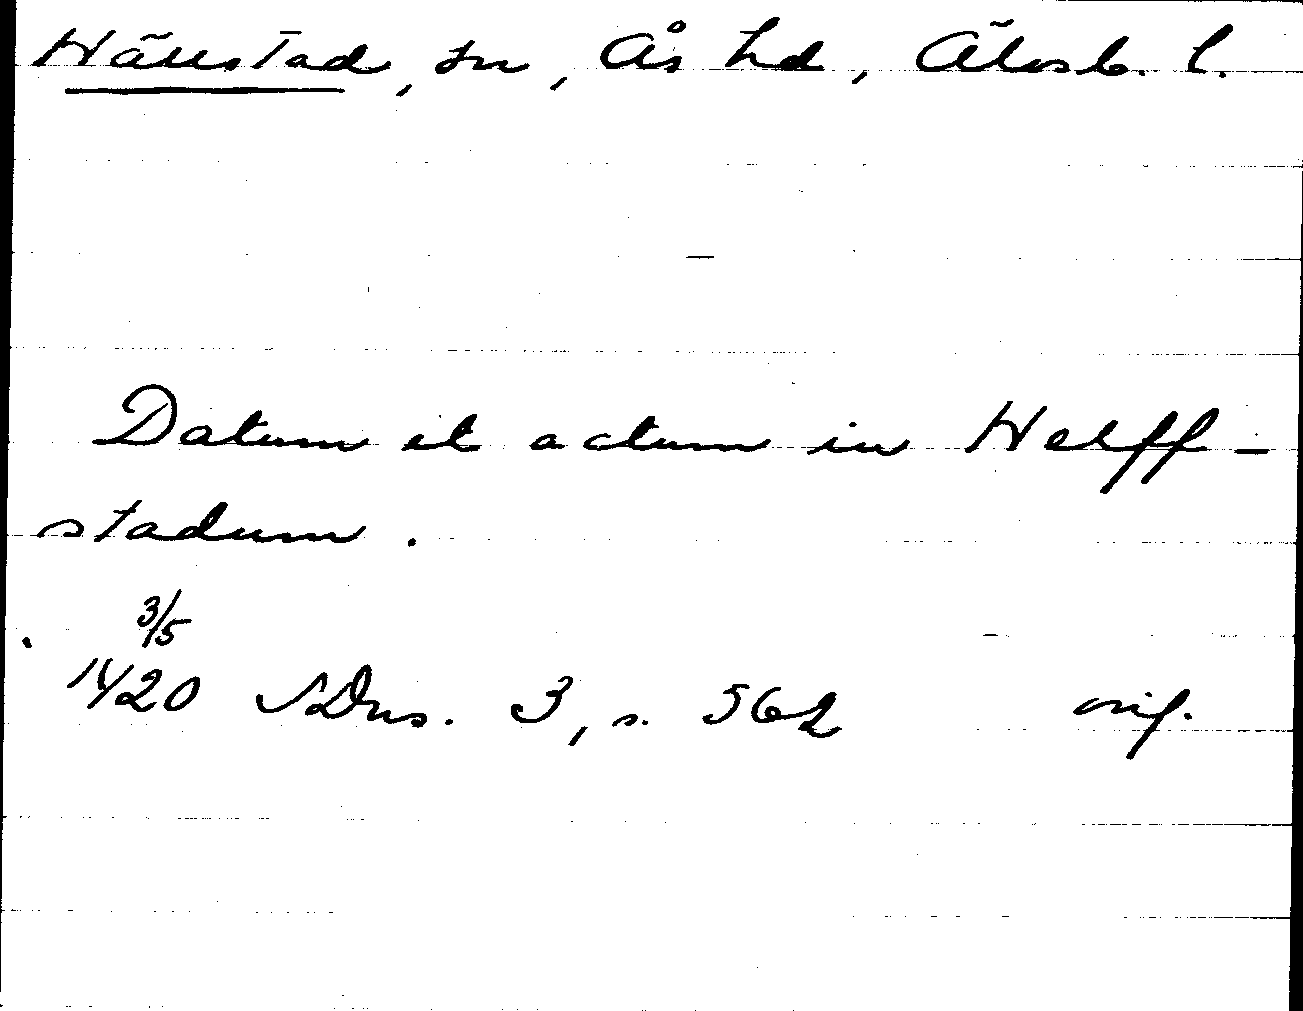 Hällstad, sn, Ås hd, Älvsb. l.
Datum et actum in Helff-
stadum.
3/5
1420 SDns. 3, s. 562 orig.